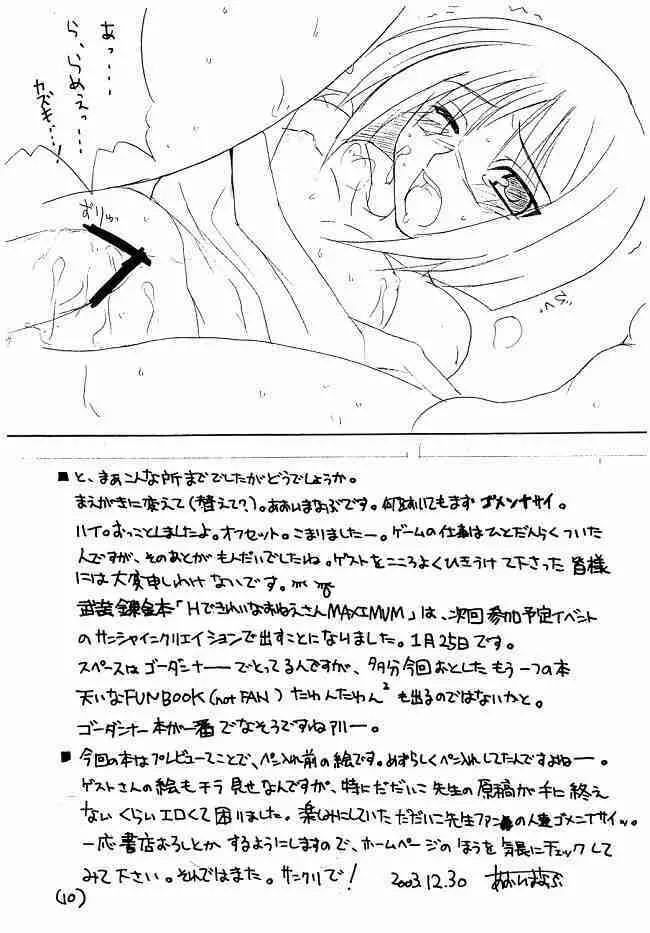 ■と、まぁこんな所まででしたがどうでしょうか。
まえがきに変えて(替えて?)。あおいまなぶです。何はおいてもまず ゴメンナサイ。
ハイ。おっことしましたよ。オフセット。こまりましたー。ゲームの仕事はひとだんらくついた
んですが、そのあとがもんだいでしたね。ゲストをこころよくひきうけて下さった皆様
には大変申しわけないです。
武装錬金本「HできれいなおねえさんMAXIMUM」は、次回参加予定イベント
のサンシャインクリエイションで出すことになりました。1月25日です。
スペースはゴーダンナーでとってるんですが、多分今回おとしたもう一つの本
天いなFUNBOOK(not FAN) たゎんたゎん2も出るのではないかと。
ゴーダンナー本が一番でなそうですねアリー。
■今回の本はプレビューてことで、ペン入れ前の絵です。めずらしくペン入れしてたんですよねー。
ゲストさんの絵もチラ見せなんですが、特にだだいこ先生の原稿が手に終え
ないくらいエロくて困りました。楽しみにしていただだいこ先生ファンの人達ゴメンナサイッ。
一応書店おろしとかするようにしますので、ホームページのほうを気長にチェックして
みて下さい。それではまた。サンクリで! 2003.12.30 あおいまなぶ
(10)